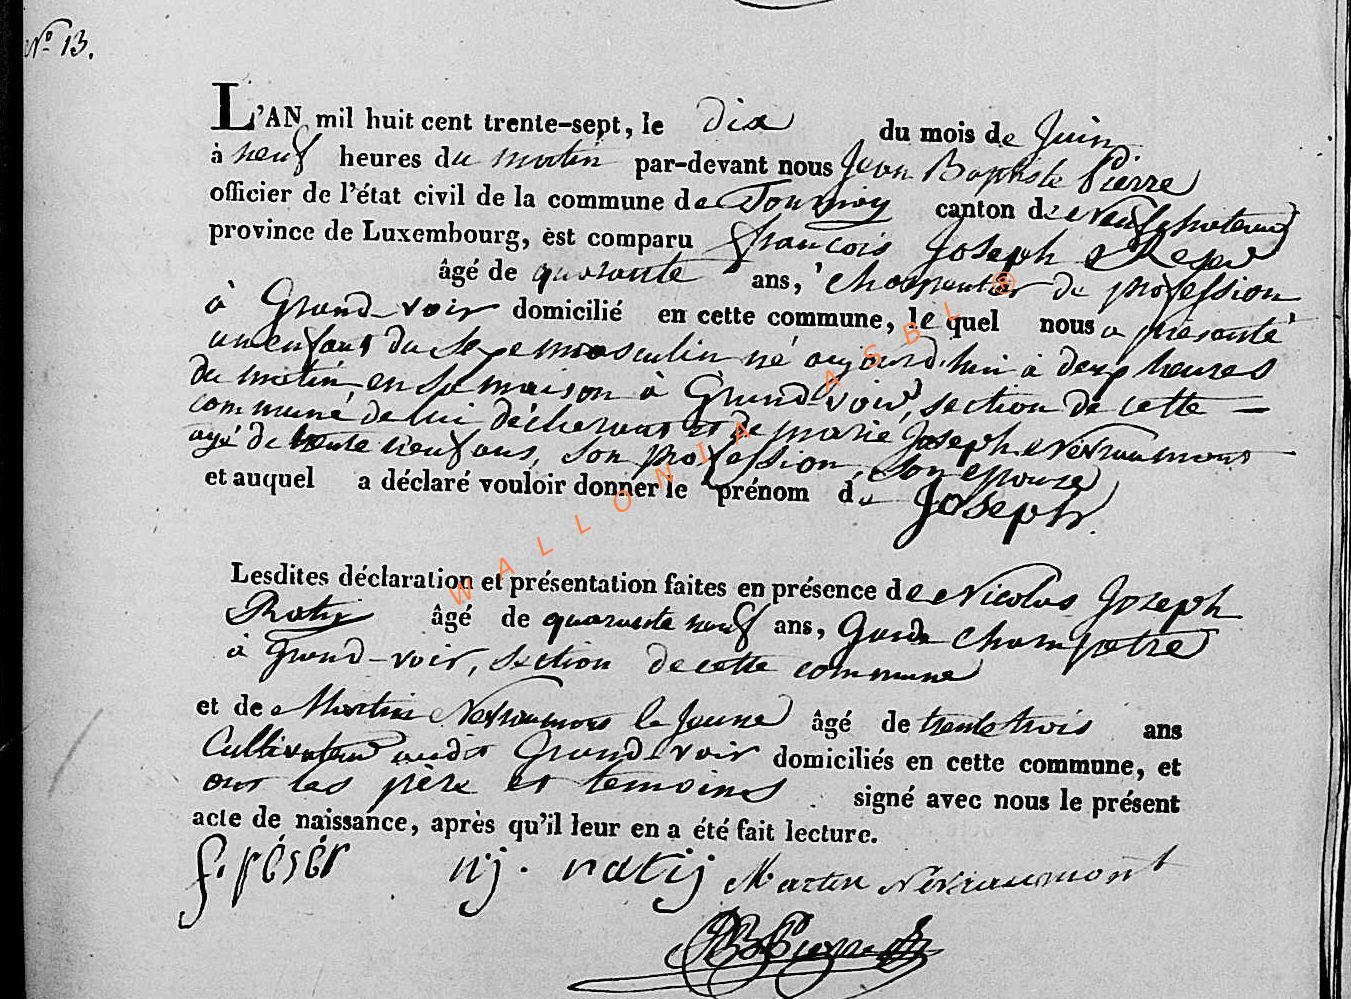 N.º 13.
L'AN mil huit cent trente-sept, le dix du mois de Juin
à neuf heures du matin par-devant nous Jean Baptiste Pierre
officier de l'état civil de la commune de Tournay canton de Neufchateau
province de Luxembourg, èst comparu françois Joseph
âgé de quarante ans, charpentier de profession
à Grand-voir domicilié en cette commune, le quel nous a presenté
un enfant du Sexe masculin né aujourd'hui à deux heures
du matin, en sa maison à Grand-voir, section de cette
commune, de lui déclarant et de marie Joseph Nevraumont
agé de trente neuf ans, son profession, son epouse
et auquel a déclaré vouloir donner le prénom de Joseph.
Lesdites déclaration et présentation faites en présence de Nicolas Joseph
Rati âgé de quarante neuf ans, Garde Champetre
à Grand-voir, section de cette commune
et de Martin Nevraumont le Jeune âgé de trente trois ans
Cultivateur audit Grand-voir domiciliés en cette commune, et
ont les père et temoins signé avec nous le présent
acte de naissance, après qu'il leur en a été fait lecture.
f. nj. ratij Martin Nevraumont
JB Pierre
WALLONIA ASBL ®